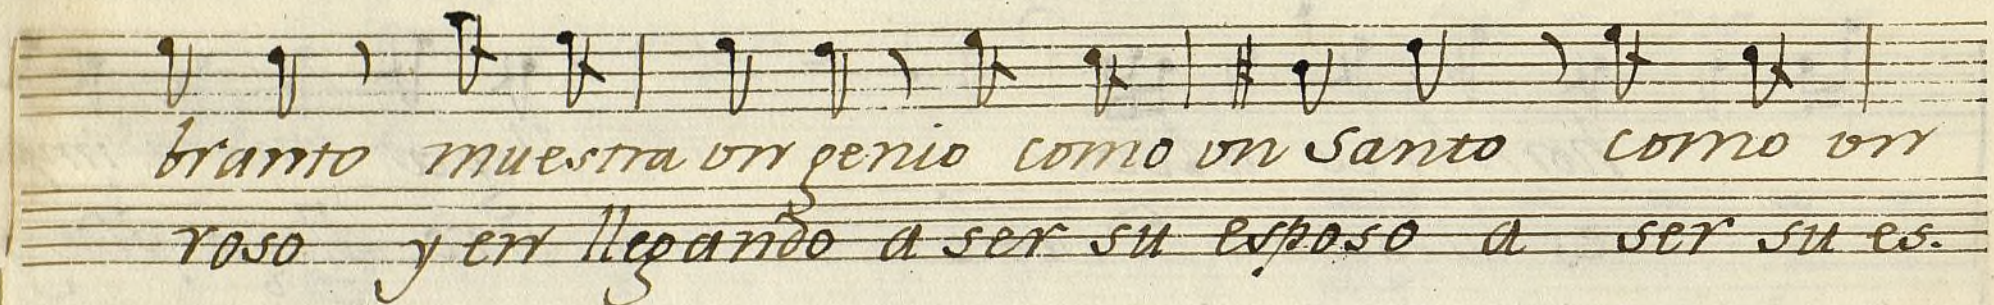 branto muestra un genio como un Santo como un
roso y en llegando a ser su esposo a ser su es.